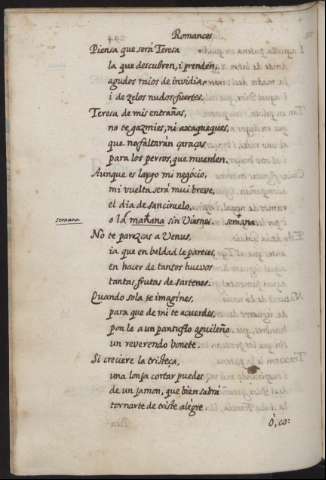 Romances
Piensa que será Teresa
la que descubren, i prenden,
agudos raios de invidia,
i de zelos nudos fuertes.
Teresa de mis entrañas,
no te gazmies, ni axaqueques,
que no faltarán çaraças
para los perros, que muerden.
Aunque es largo mi negocio,
mi vuelta será mui breve,
el dia de sanciruelo,
semana o la mañana sin Viernes. semana
No te parezcas a Venus,
ia que en beldad le pareces,
en hacer de tantos huevos
tantas frutas de sartenes.
Quando sola te imagines,
para que de mi te acuerdes,
pon le a un pantuflo aguileño
un reverendo bonete.
Si creciere la tristeça,
una lonja cortar puedes
de un jamon, que bien sabrá
tornarte de triste alegre
O, co: